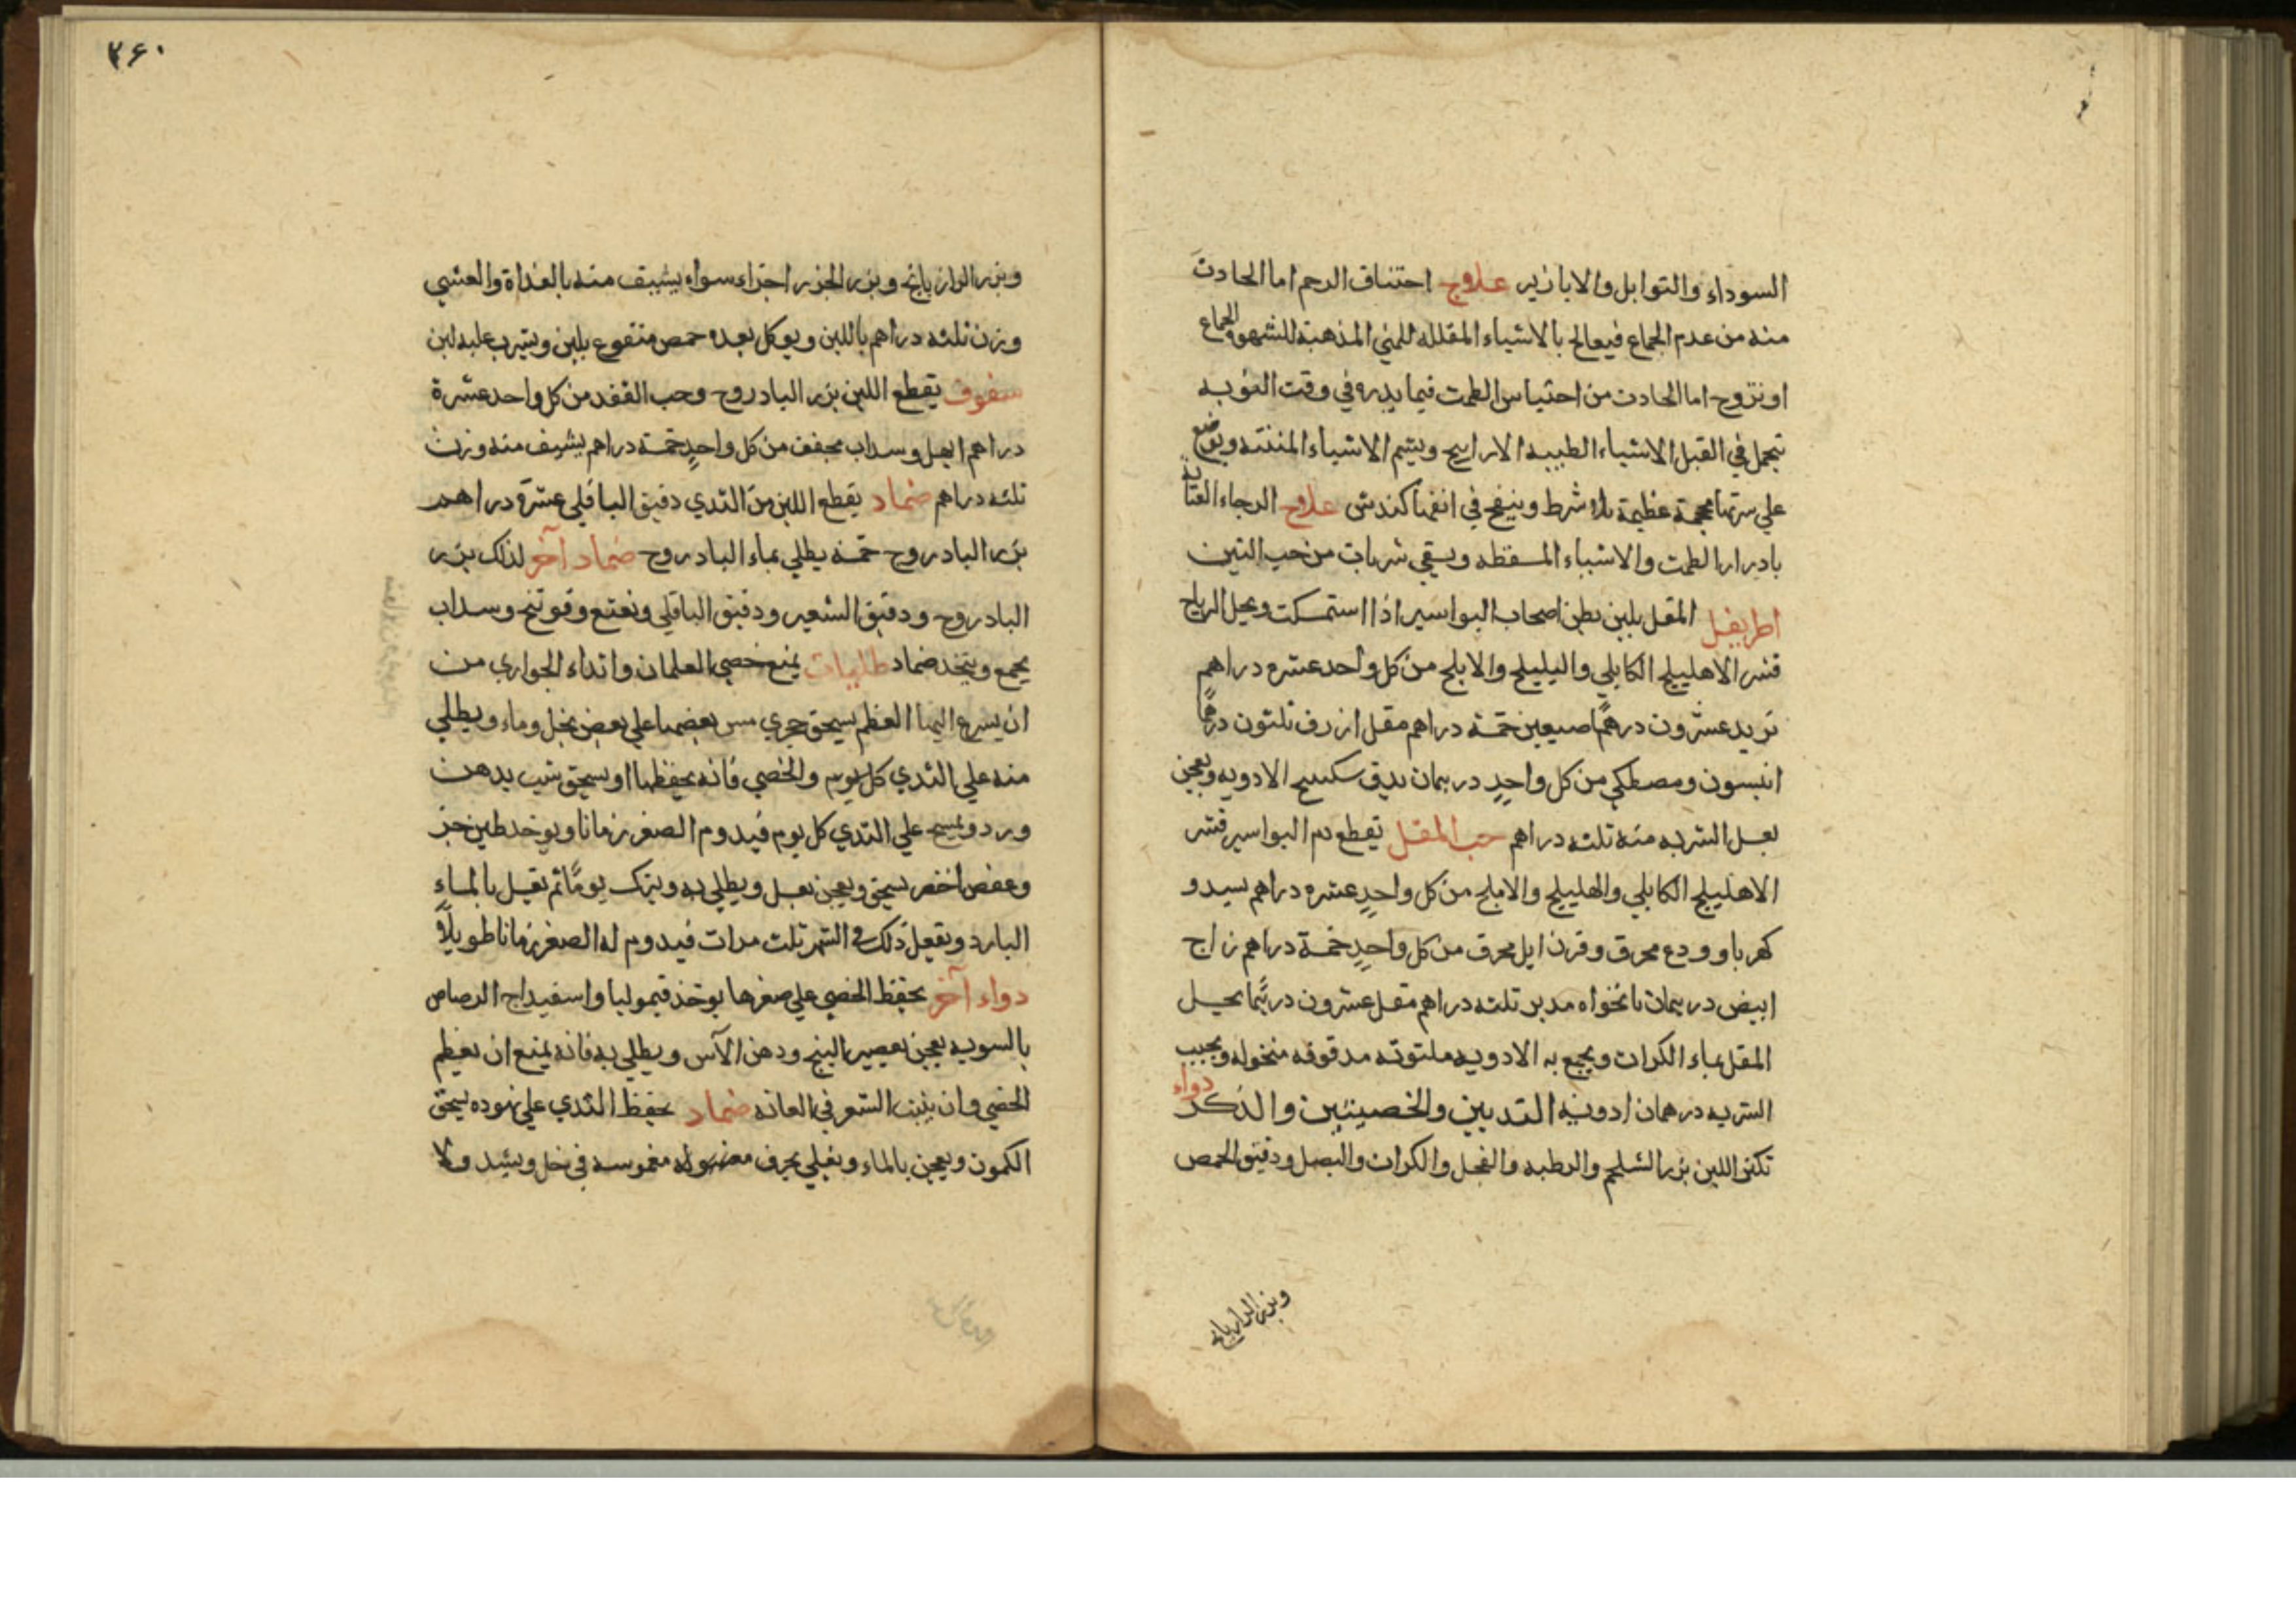 السوداء والتوابل والابازير علاج اختناق الرحم اما الحادث
منه من عدم الجماع فيعالج بالاشياء المقلله للمني المذهبة للشهوة الجماع
او تتزوج اما الحادث من احتباس الطمث فيما يدره في وقت النوبه
تتحمل في القبل الاشياء الطيبه الاراييح ويشم الاشياء المنتنه ويوضع
علي سرتها محجمة عظيمة بلا شرط وينفخ في انفها كندش علاج الرجاء
بادرار الطمث والاشياء المسقطه ويسقي شربات من حب التين
اطريفل المقل يلين بطن اصحاب البواسير اذا استمسكت ويحل الرياح
قشر الاهليلج الكابلي والبليلج والاملج من كل واحد عشره دراهم
تربد عشرون درهمًا خمسة دراهم مقل ازرق ثلثون درهمًا
انيسون ومصطكي من كل واحدٍ درهمان يدق سكبينج الادويه ويعجن
بعسل الشربه منه ثلثه دراهم حب المقل تقطع دم البواسير قشر
الاهليلج الكابلي والهليلج والاملج من كل واحدٍ عشره دراهم بسد و
كهربا وودع محرق وقرن ايل محرق من كل واحدٍ خمسة دراهم زاج
ابيض درهمان نانخواه مدبر ثلثه دراهم مقل عشرون درهمًا يحل
المقل بماء الكراث ويجمع به الادويه ملتوته مدقوقه منخوله ويحبب
الشربه درهمان ادوية الثديين والخصيتين والذكر دواء
تكثر اللبن بزر الشلجم والرطبه والفجل والكراث والبصل ودقيق الحمص
وبزر الرازيانج
۲۶۰
وبزر الرازيانج وبزر الجزر اجزاء سواء يستف منه بالغداة والعشي
وزن ثلثه دراهم باللبن ويوكل بعده حمص منقوع بلبن ويشرب عليه لبن
سفوف يقطع اللبن بزر البادروج وحب الفقد من كل واحد عشرة
دراهم ابهل وسداب مجفف من كل واحدٍ خمسة دراهم يستف منه وزن
ثلثه دراهم ضماد يقطع اللبن من الثدي دقيق الباقلي عشرة دراهم
بزر البادروج خمسة يطلي بماء البادروج ضماد آخر لذلك بزر
البادروج ودقيق الشعير ودقيق الباقلي ونعنع وفوتنج وسداب
يجمع ويتخذ ضماد طلیات يمنع خصي الغلمان واثداء الجواري من
ان يسرع اليها العظم يسحق حجري مسن بعضهما علي بعض بخل وماء ويطلي
منه علي الثدي كل يوم والخصي فانه يحفظها او يسحق شب بدهن
ورد ويمسح علي الثدي كل يوم فيدوم الصغر زمانا ويوخد طين حر
وعفص اخضر يسحق ويعجن بعسل ويطلي به ويترك يومًا ثم يغسل بالماءِ
البارد ويفعل ذلك في الشهر ثلث مرات فيدوم له الصغر زمانا طويلًا و
دواء آخر يحفظ الخصي علي صغرها يوخذ قيموليا واسفيداج الرصاص
بالسويه يعجن بعصير البنج ودهن الآس ويطلي به فانه يمنع ان يعظم
الخصي وان ينبت الشعر في العانه ضماد يحفظ الثدي علي نهوده يسحق
الكمون ويعجن بالماء ويغلي بخرق مغموسه في خل ويشد ولا